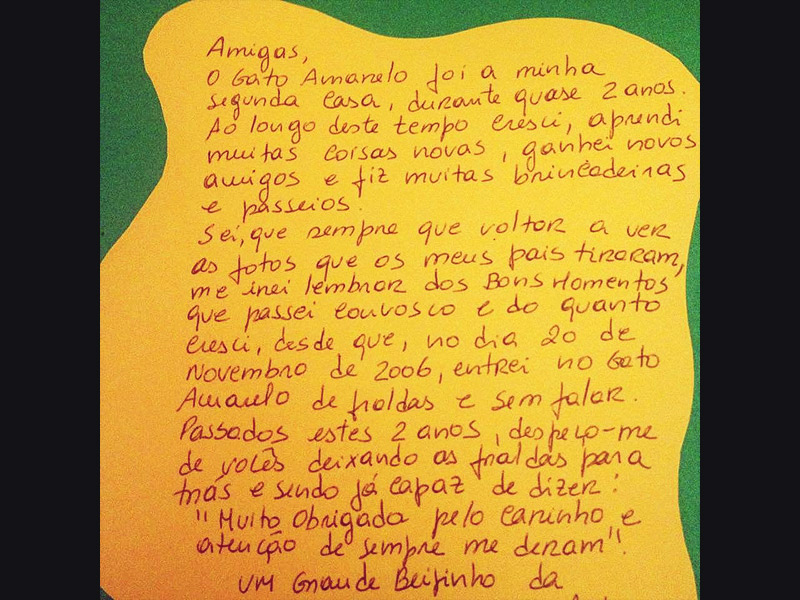 Amigas,
O Gato Amarelo foi a minha
segunda casa, durante quase 2 anos.
Ao longo deste tempo cresci, aprendi
muitas coisas novas, ganhei novos
amigos e fiz muitas brincadeiras
e passeios.
Sei, que sempre que voltar a ver
as fotos que os meus pais tiraram,
me irei lembrar dos Bons Momentos
que passei convosco e do quanto
cresci, desde que, no dia 20 de
Novembro de 2006, entrei no Gato
Amarelo de fraldas e sem falar.
Passados estes 2 anos, despeço-me
de vocês deixando as fraldas para
trás e sendo já capaz de dizer:
"Muito Obrigada pelo carinho e
atenção de sempre me deram".
Um Grande Beijinho da